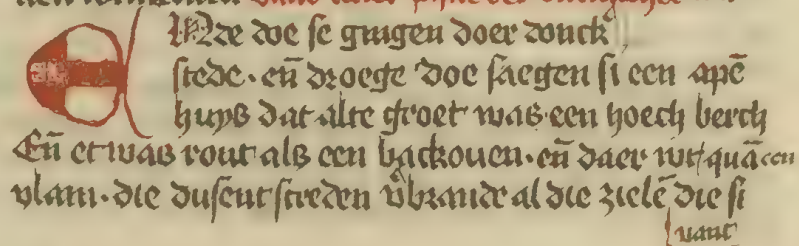 Ende doe se gingen doer donck
stede · en̄ droege doe saegen si een apē
huyß dat alte groet was · een hoech berch
En̄ et was ront als een backouen · en̄ daer wt quā een
vlam · die dusent screden v̄brande al die zielē die si
vant